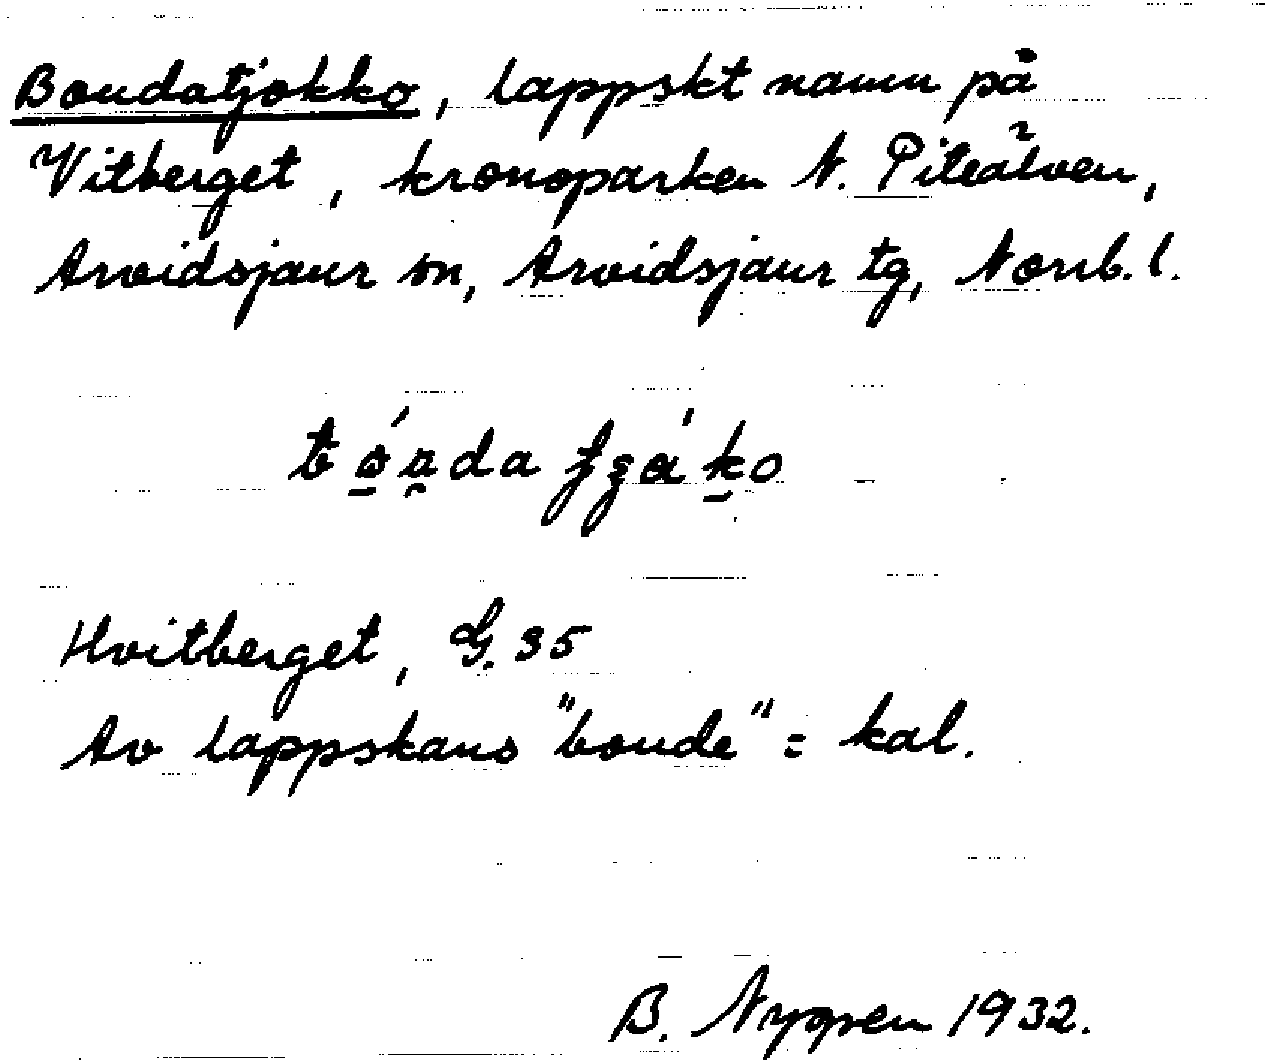 Boudatjokko, lappskt namn på
Vitberget, kronoparken N. Piteälven,
Arvidsjaur sn, Arvidsjaur tg, Norrb. l.
Hvitberget, G. 35
Av lappskans "boude" = kal.
B. Nygren 1932.